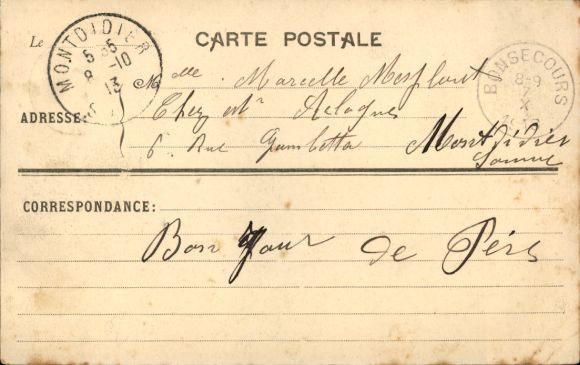 Le
CARTE POSTALE
MONTDIDIER
5 35
8 -10
13
BONSECOURS
8-9
7
X
Mlle Marcelle
ADRESSE:
Chez Mr
6 Rue Gambetta Montdidier
Somme
CORRESPONDANCE:
Bon Jour de Pérs